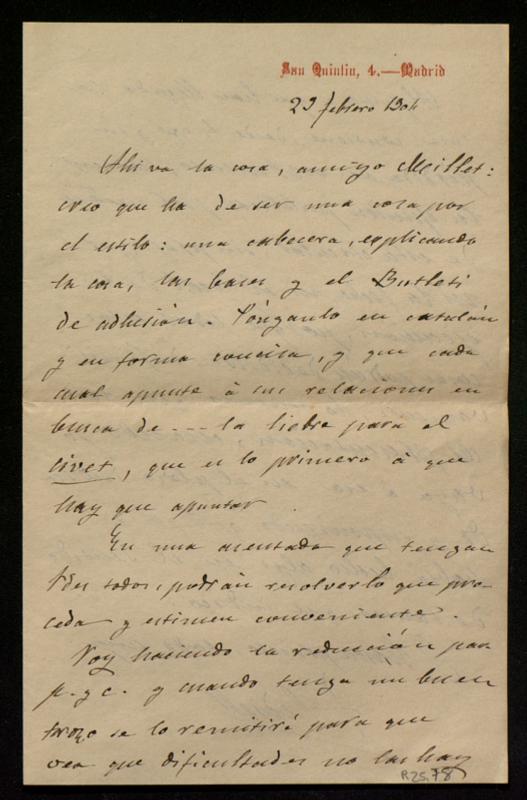 San Quintin, 4.—Madrid
29 febrero 1904
Ahi va la cosa, amigo Millet:
creo que ha de ser una cosa por
el estilo: una cabecera, explicando
la cosa, las bases y el Butlletí
de adhesión. Pónganlo en catalán
y en forma concisa, y que cada
cual apunte á sus relaciones en
busca de --- la liebre para el
civet, que es lo primero á que
hay que apuntar
En una asentada que tengan
Vdes todos, podrán resolver lo que pro-
ceda y estimen conveniente.
Voy haciendo la reducción para
p. y c. y cuando tenga un buen
trozo se lo remitiré para que
vea que dificultades no las hay
R25,78